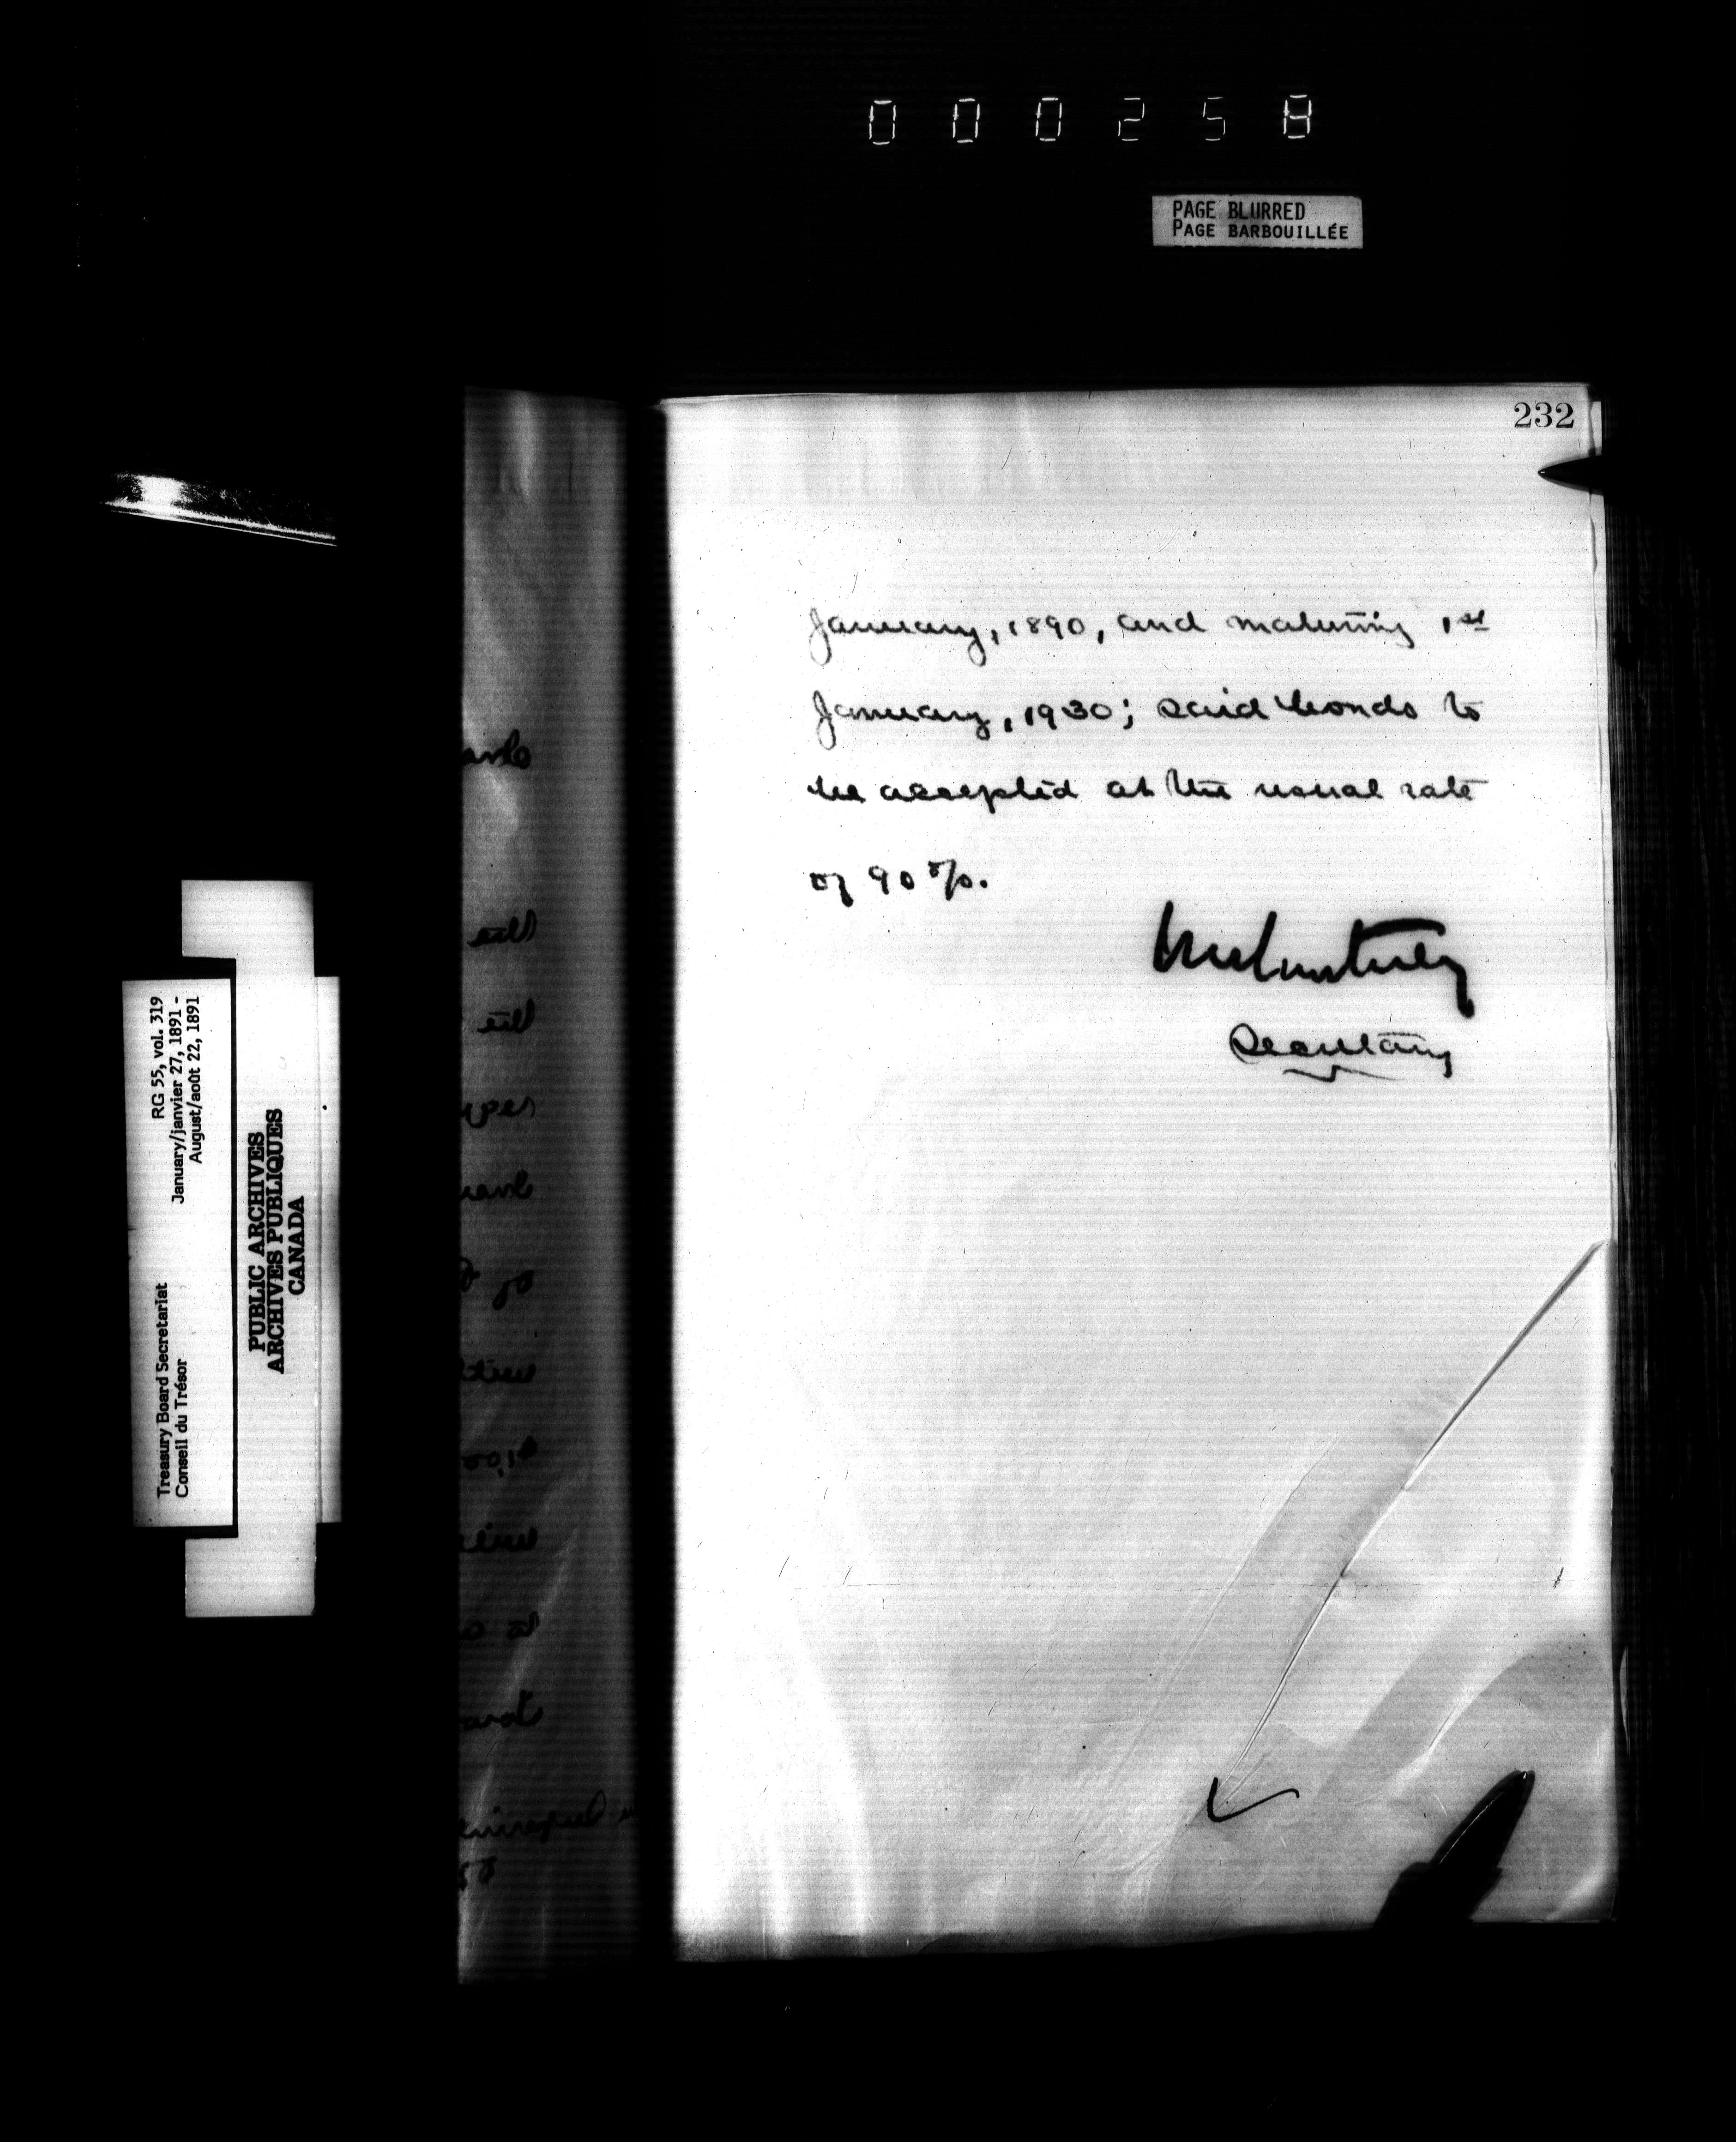 000258
PAGE BLURRED
PAGE BARBOUILLÉE
232
January, 1890, and maturing 1st
January, 1930; said bonds to
be accepted at the usual rate
of 90 %.
Secretary
RG 55, vol. 319
January/janvier 27, 1891 -
August/août 22, 1891
Treasury Board Secretariat
Conseil du Trésor
PUBLIC ARCHIVES
ARCHIVES PUBLIQUES
CANADA